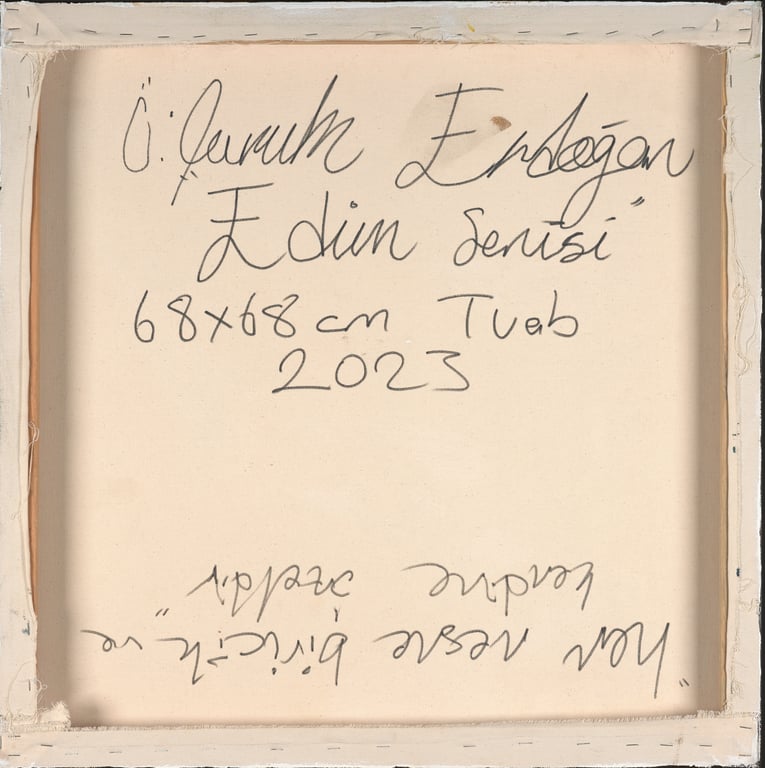 Ö. Çuruk Erdoğan
Edim Serisi"
68x68 cm Tuab
2023
"her nesne biricik ve
kendine özeldir"